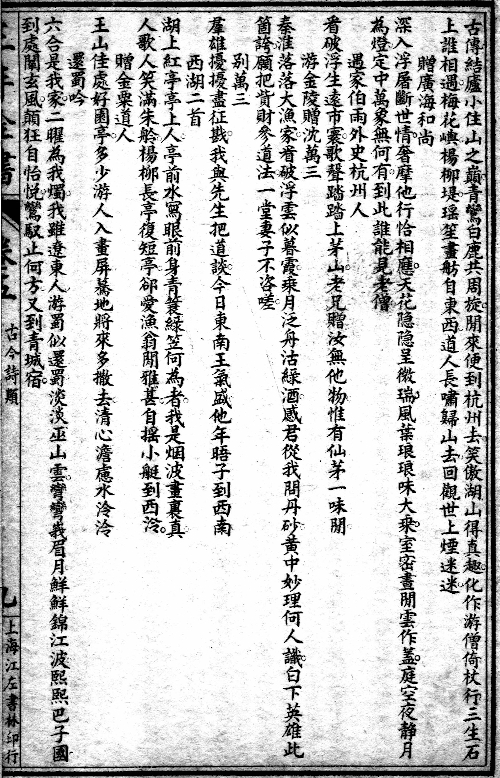 古傳結廬小住山之巔青鸞白鹿共周旋閒來便到杭州去笑傲湖山得真趣化作游僧倚杖行三生石
上誰相遇梅花嶼楊柳堤瑶笙畫舫自東西道人長嘯歸山去回觀世上煙迷迷
贈廣海和尚
深入浮屠斷世情奢摩他行恰相應天花隐隐呈微瑞風葉琅琅味大乘室密晝閒雲作蓋庭空夜静月
為燈定中萬象無何有到此誰能見老僧
遇家伯雨外史杭州人
看破浮生遠市裹歌聲踏踏上茅山老兄贈汝無他物惟有仙茅一味閒
游金陵贈沈萬三
秦淮落落大漁家看破浮雲似暮霞乘月泛舟沽綠酒感君從我問丹砂黄中妙理何人識白下英雄此
箇誇願把貲財參道法一堂妻子不咨嗟
别萬三
羣雄擾擾盡征戡我與先生把道談今日東南王氣盛他年晤子到西南
西湖二首
湖上紅亭亭上人亭前水寫眼前身青簑綠笠何為者我是烟波畫裏真
人歌人笑滿朱舲楊柳長亭復短亭郤愛漁翁閒雅甚自摇小艇到西泠
贈金粟道人
玉山佳處好園亭多少游人入畫屏驀地將來多撒去清心澹慮水泠泠
還蜀吟
六合是我家二曜為我燭我雖遼東人游蜀似還蜀淡淡巫山雲彎彎峩眉月鮮鮮錦江波熙熙巴子國
到處闡玄風顛狂自怡悅鸞馭止何方又到青城宿
古今詩題
九
上海江左書林印行